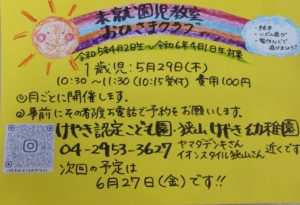 未就園児教室
おひさまクラブ
令和5年4月2日生〜令和6年4月1日生対象
・絵本
・リズム遊び
・製作などで
遊びましょう♪
1歳児：5月29日(木)
10:30〜11:30 (10:15受付) 費用100円
◎月ごとに開催します。
◎事前にその都度お電話で予約をお願いします。
けやき認定こども園・狭山けやき幼稚園
04-2953-3627
ヤマダデンキさん
イオンスタイル狭山さん
近くです
次回の予定は
6月27日(金)です!!